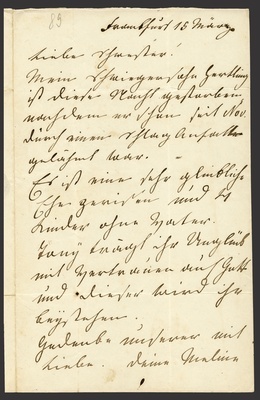 89
Frankfurt 15 März
Liebe Schwester!
Mein Schwiegersohn Hertting
ist diese Nacht gestorben
nachdem er schon seit Nov.
durch einen Schlag Anfall
gelähmt war.
Es ist eine sehr glückliche
Ehe gerissen und 4
Kinder ohne Vater.
Tony trägt ihr Unglück
mit Vertrauen auf Gott
und dieser wird ihr
beystehen.
Gedenke unserer mit
Liebe. Deine Meline